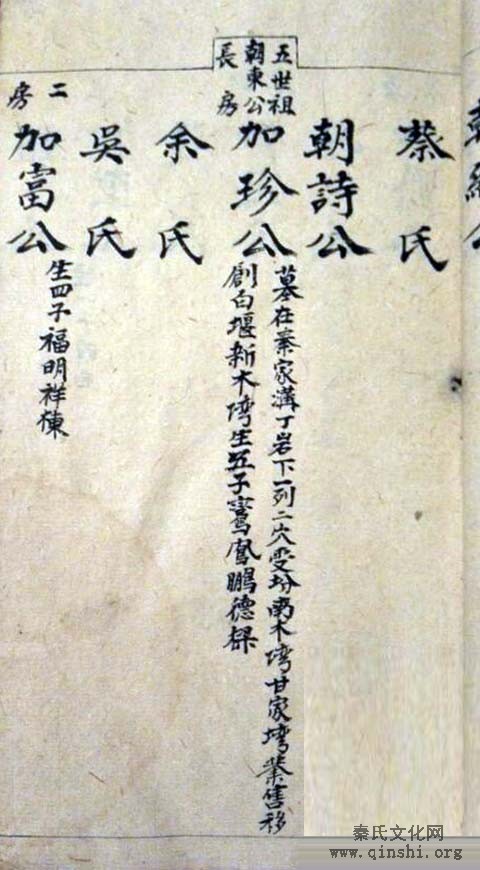 蔡氏
朝詩公
五世祖
朝東公
長房
加珍公
墓在秦家溝丁岩下一列二穴受分南木塆甘家塆業售移
創白堰新木塆生五子鸞鳳鵬德樑
余氏
吳氏
二房
加富公
生四子福明祥棟
秦氏文化网
www.qinshi.org